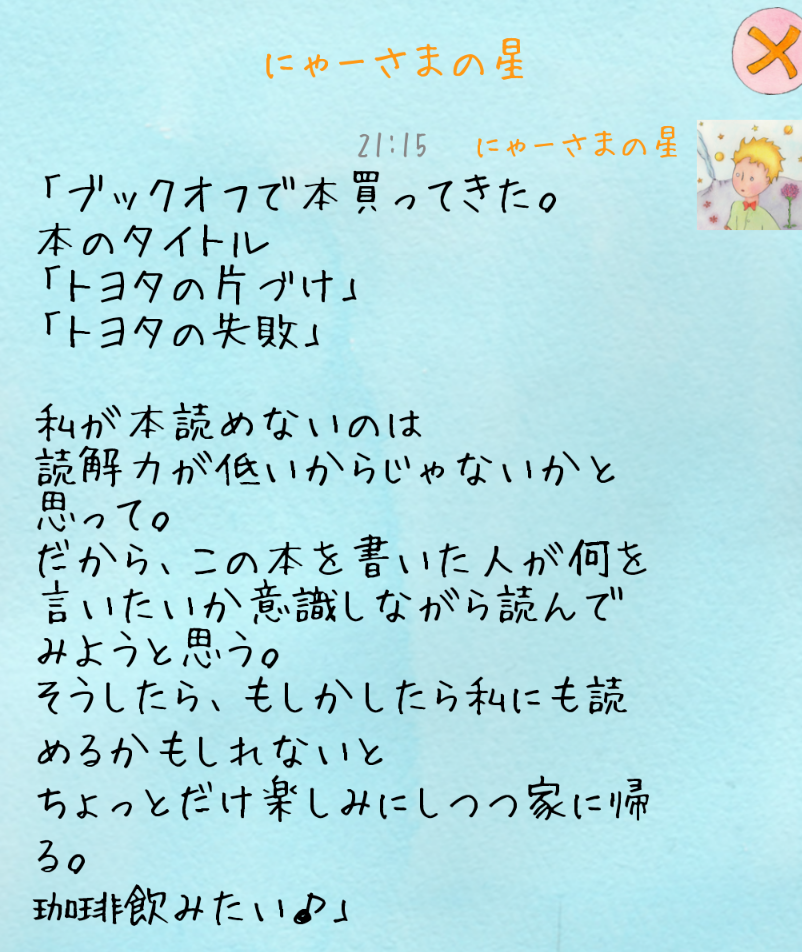 にゃーさまの星
21:15 にゃーさまの星
「ブックオフで本買ってきた。
本のタイトル
「トヨタの片づけ」
「トヨタの失敗」
私が本読めないのは
読解力が低いからじゃないかと
思って。
だから、この本を書いた人が何を
言いたいか意識しながら読んで
みようと思う。
そうしたら、もしかしたら私にも読
めるかもしれないと
ちょっとだけ楽しみにしつつ家に帰
る。
珈琲飲みたい♪」